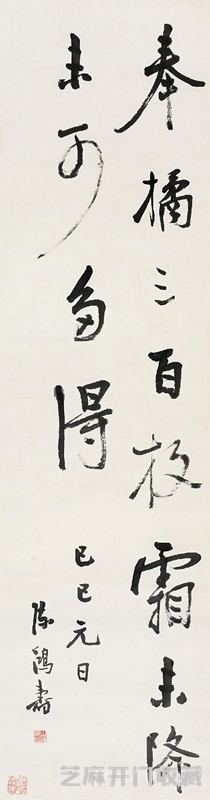 奉橘三百枚霜未降
未可多得
己巳元日
陈鸿寿
芝麻开门收藏